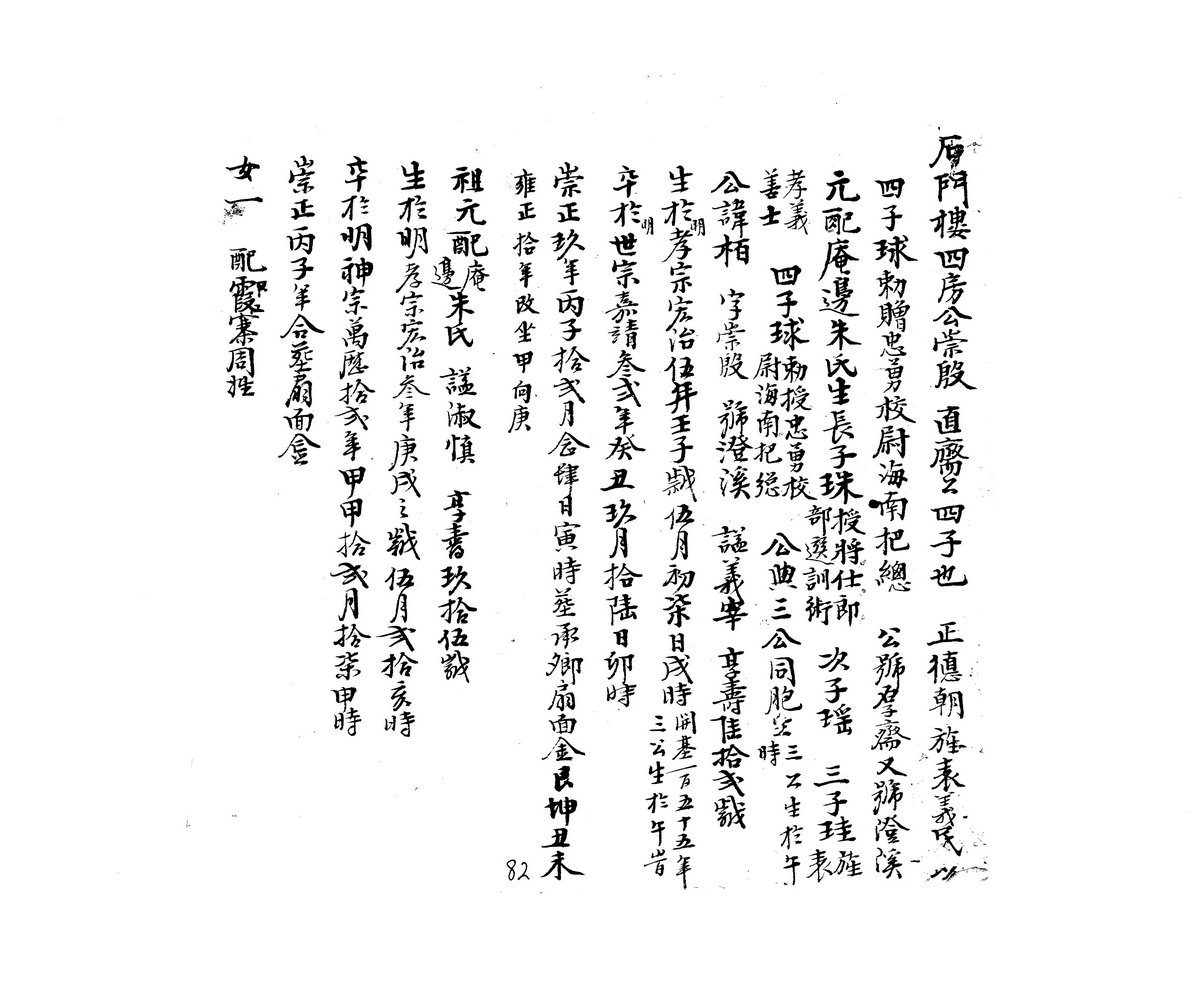 厝門樓四房公崇殷 直齋公四子也 正德朝旌表義民 以
四子球勅贈忠勇校尉海南把總 公號孚齋又號澄溪
元配庵邊朱氏生長子珠授將仕郎部選訓術 次子瑶 三子珪旌表
孝義善士 四子球勅授忠勇校尉海南把總 公典三公同胞 三公生於午時
公諱栢 字崇殷 號澄溪 諡義宰 享壽陸拾弍歲
生於明孝宗宏治伍年壬子歲伍月初柒日戌時開基一百五十五年三公生於午時
卒於明世宗嘉靖叁弍年癸丑玖月拾陸日卯時
崇正玖年丙子拾弍月念肆日寅時葬承卿扇面金艮坤丑未
雍正拾年改坐甲向庚
祖元配庵邊朱氏 諡淑慎 享壽玖拾伍歲
生於明孝宗宏治叁年庚戌之歲伍月弍拾亥時
卒於明神宗萬歷拾弍年甲申拾弍月拾柒甲時
崇正丙子年合葬扇面金
女一 配霞寨周姓
82